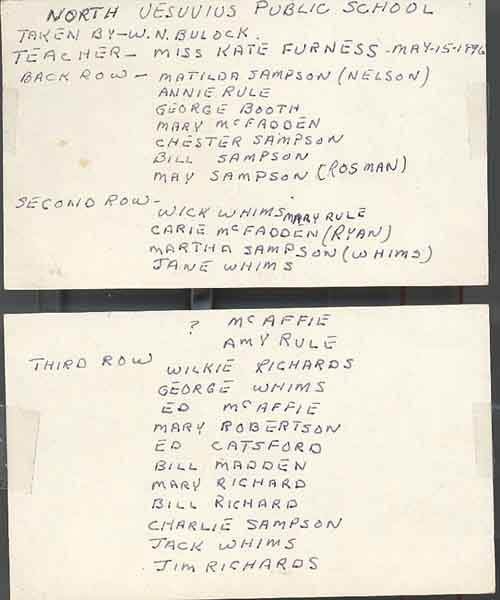 NORTH VESUVIUS PUBLIC SCHOOL
TAKEN BY - W.N. BULOCK.
TEACHER - MISS KATE FURNESS - MAY-15-1896
BACK ROW - MATILDA SAMPSON (NELSON)
ANNIE RULE
GEORGE BOOTH
MARY McFADDEN
CHESTER SAMPSON
BILL SAMPSON
MAY SAMPSON (ROSMAN)
SECOND ROW -
WICK WHIMS MARY RULE
CARIE McFADDEN (RYAN)
MARTHA SAMPSON (WHIMS)
JANE WHIMS
? McAFFIE
AMY RULE
THIRD ROW WILKIE RICHARDS
GEORGE WHIMS
ED McAFFIE
MARY ROBERTSON
ED CATSFORD
BILL MADDEN
MARY RICHARD
BILL RICHARD
CHARLIE SAMPSON
JACK WHIMS
JIM RICHARDS